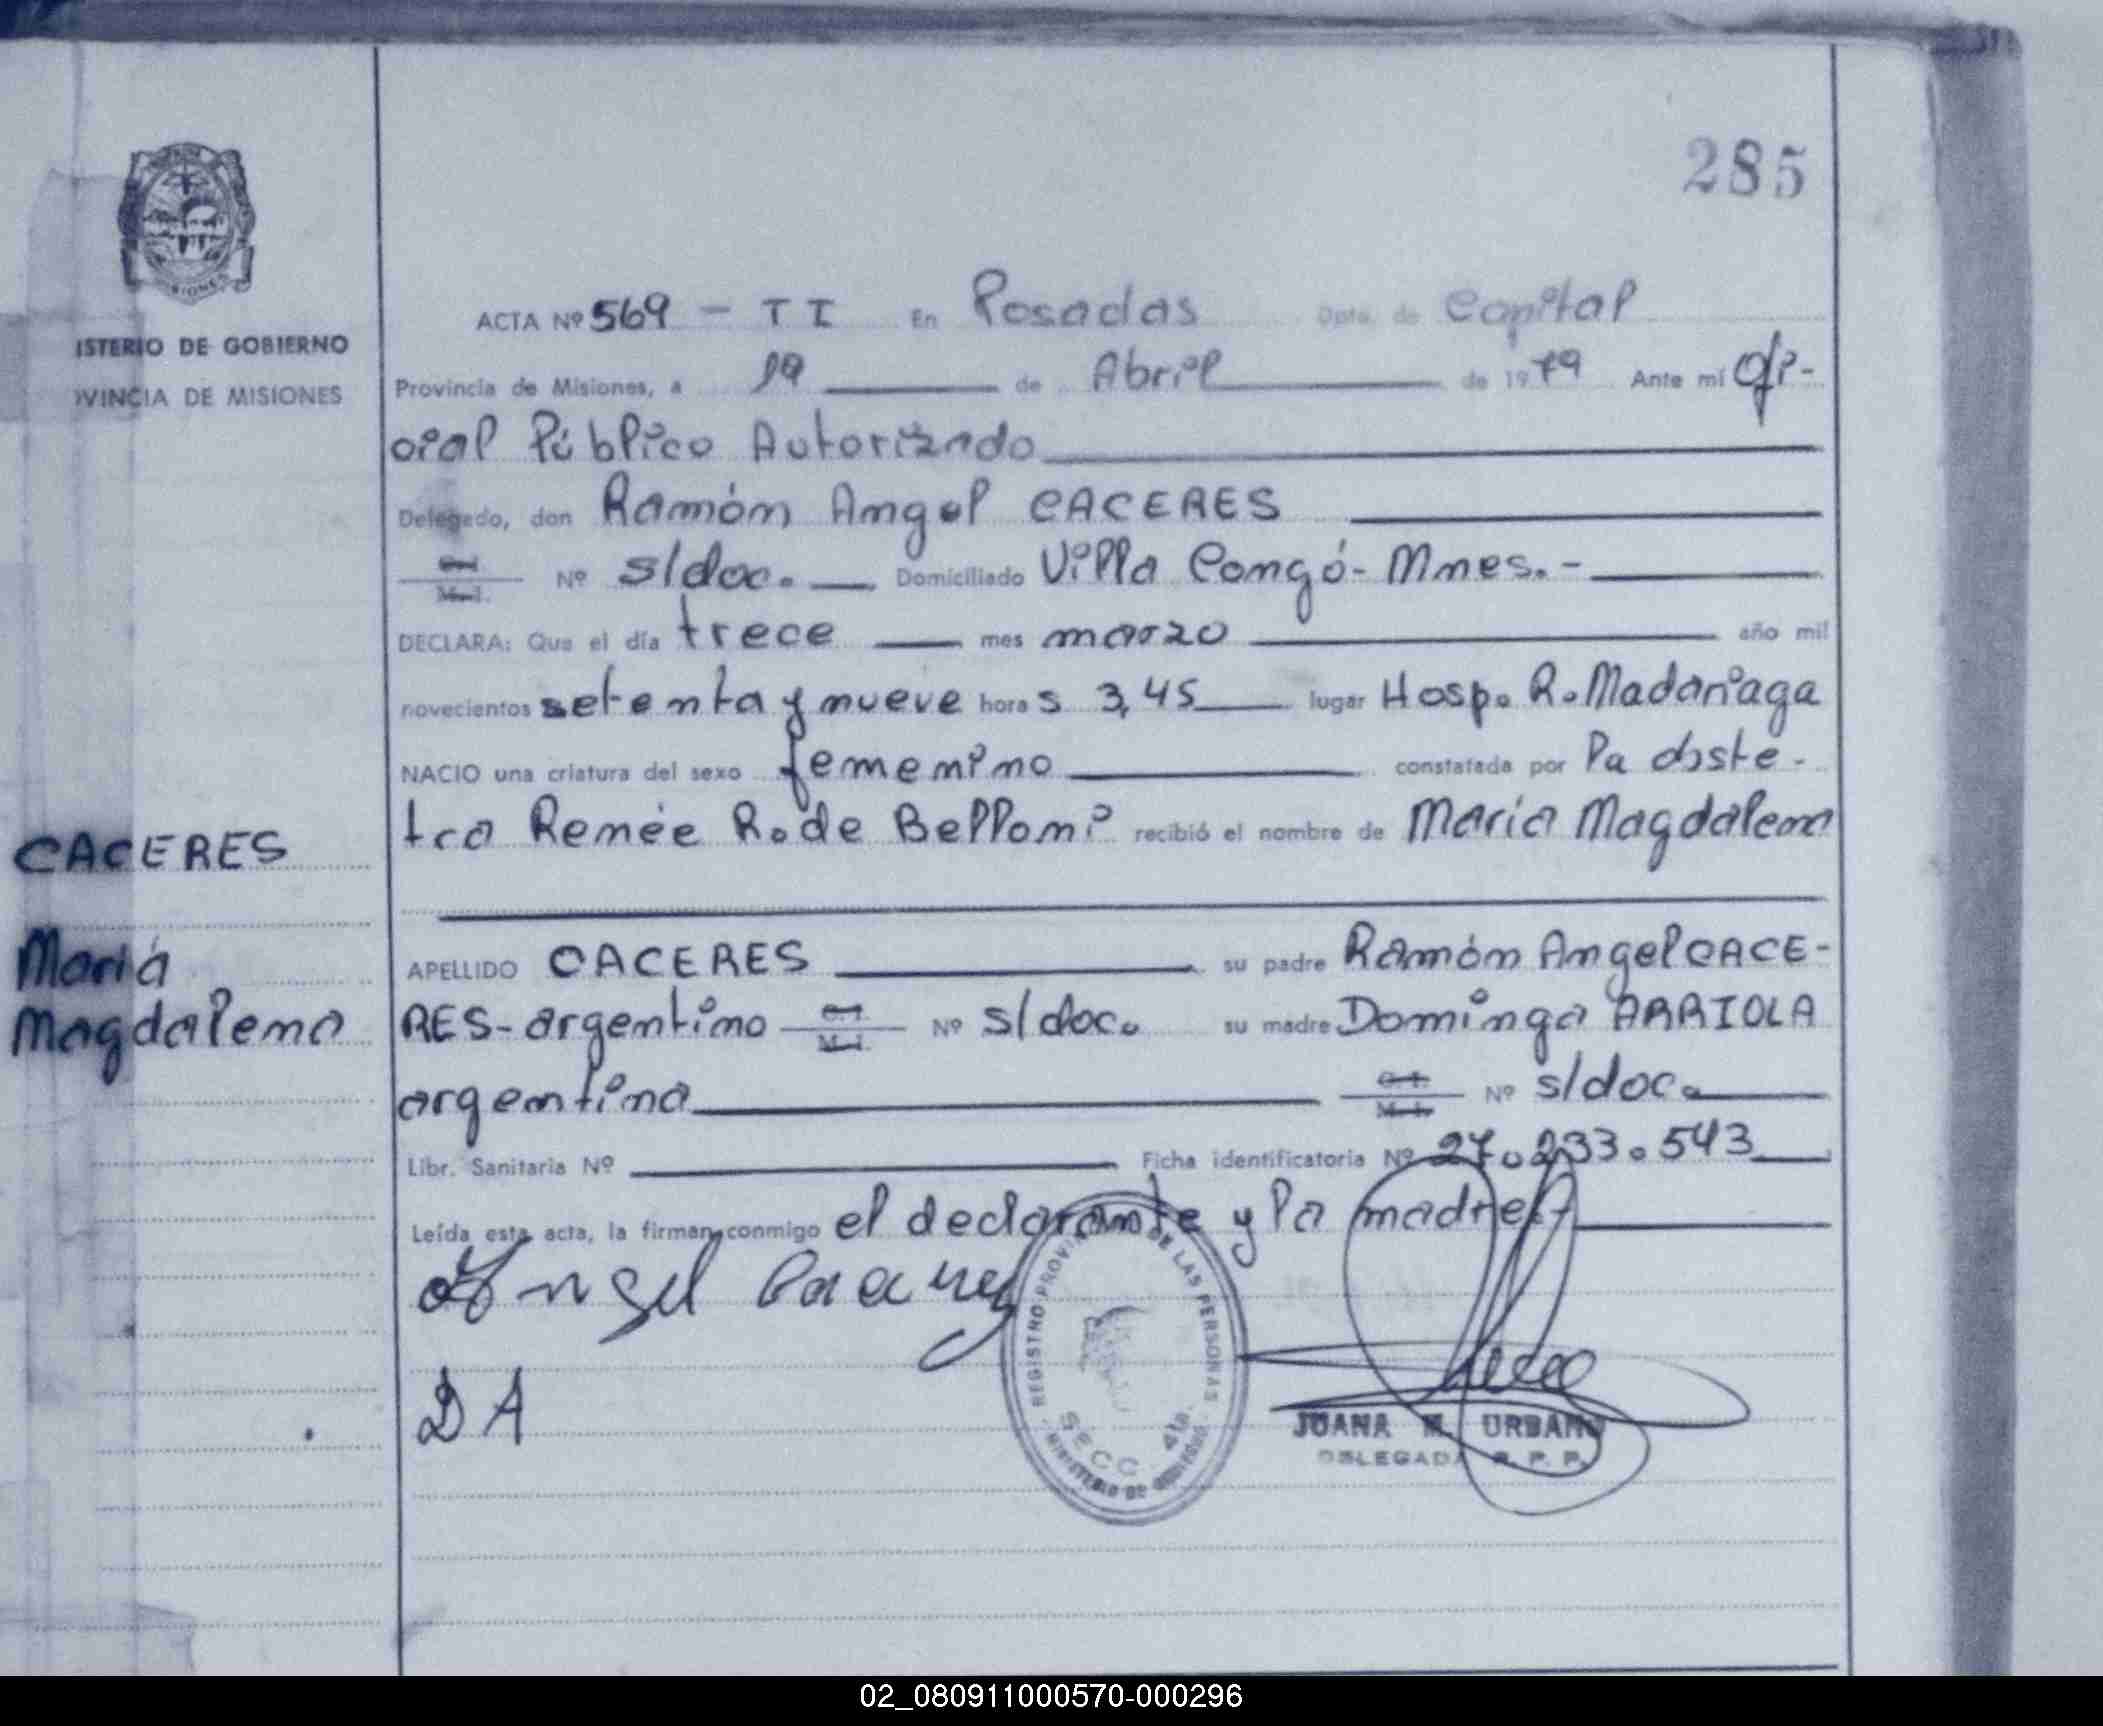 285
ISTERIO DE GOBIERNO
OVINCIA DE MISIONES
ACTA Nº 569 - T I En Posadas Dpto. de Capital
Provincia de Misiones, a 19 de Abril de 1979 Ante mí Ofi-
cial Público Autorizado
Delegado, don Ramón Angel CACERES
C.I. M.I. Nº s/doc. Domiciliado Villa Longó- Mnes.-
DECLARA: Que el día trece mes marzo año mil
novecientos setenta y nueve horas 3,45 lugar Hosp. R. Madariaga
NACIO una criatura del sexo femenino constatada por la obste-
tra Renée R. de Belloni recibió el nombre de María Magdalena
CACERES
María
Magdalena
APELLIDO CACERES su padre Ramón Angel CACE-
RES- argentino C.I. M.I. Nº s/doc. su madre Dominga ARRIOLA
argentina C.I. M.I. Nº s/doc.
Libr. Sanitaria Nº Ficha identificatoria Nº 27.233.543
Leída esta acta, la firman conmigo el declarante y la madre
Angel Caceres
D A
REGISTRO PROVINCIAL DE LAS PERSONAS
SECC. 4ta.
MINISTERIO DE GOBIERNO
JUANA M. URBANO
DELEGADA R. P. P.
02_080911000570-000296